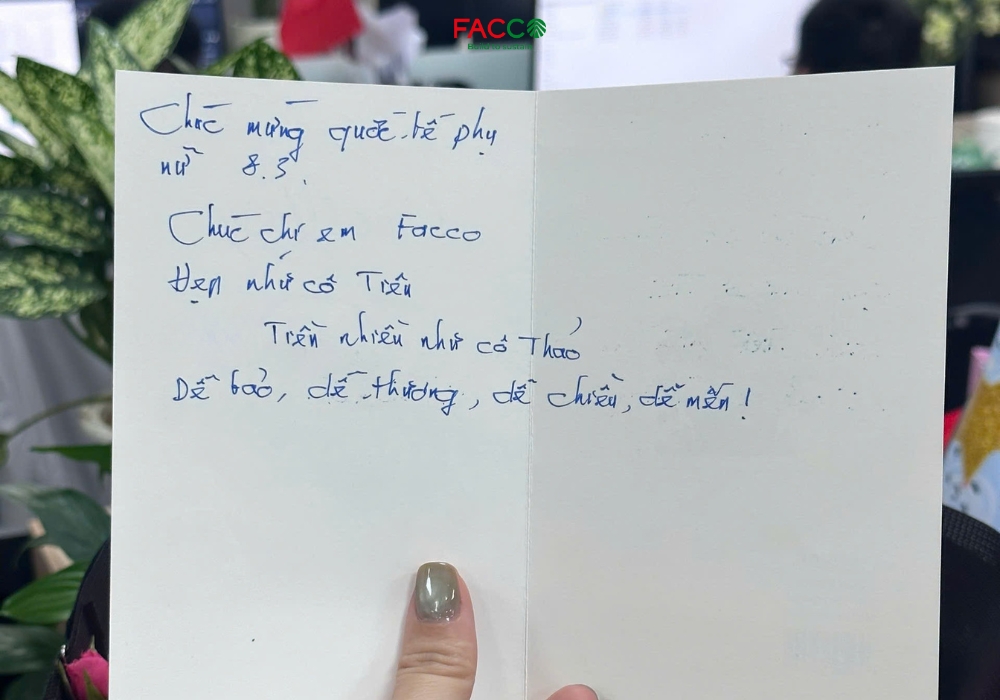 FACCO
Chúc mừng quốc tế phụ
nữ 8.3.
Chúc chị em Facco
Đẹp như cô Tiên
Tiền nhiều như cô Thảo
Dễ bảo, dễ thương, dễ chiều, dễ mến!